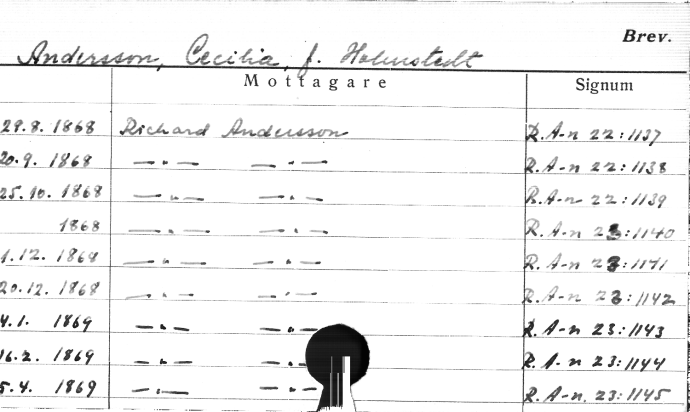 Brev.
Andersson, Cecilia, f. Holmstedt
Mottagare Signum
29.8. 1868 Richard Andersson R. A-n 22:1137
20.9. 1868 — " — — " — R. A-n 22:1138
25.10. 1868 — " — — " — R. A-n 22:1139
1868 — " — — " — R. A-n 23:1140
1.12. 1868 — " — — " — R. A-n 23:1141
20.12. 1868 — " — — " — R. A-n 23:1142
4.1. 1869 — " — — " — R. A-n 23:1143
16.2. 1869 — " — — " — R. A-n 23:1144
5.4. 1869 — " — — " — R. A-n. 23:1145